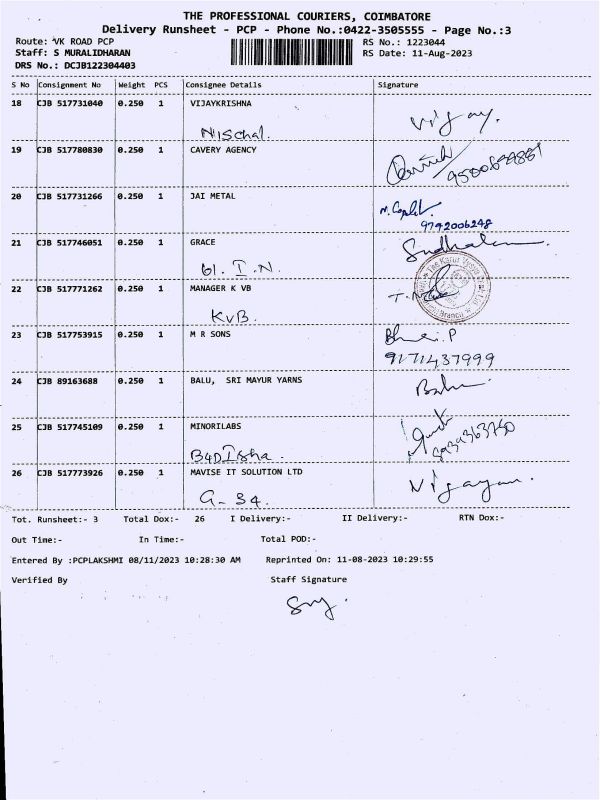 THE PROFESSIONAL COURIERS, COIMBATORE
Delivery Runsheet - PCP - Phone No.:0422-3505555 - Page No.:3
Route: VK ROAD PCP RS No.: 1223044
Staff: S MURALIDHARAN RS Date: 11-Aug-2023
DRS No.: DCJB122304403
S No Consignment No Weight PCS Consignee Details Signature
18 CJB 517731040 0.250 1 VIJAYKRISHNA
Nischal. Vijay.
19 CJB 517780830 0.250 1 CAVERY AGENCY
20 CJB 517731266 0.250 1 JAI METAL
9792006248
21 CJB 517746051 0.250 1 GRACE
61. I.N.
22 CJB 517771262 0.250 1 MANAGER K VB
KVB.
23 CJB 517753915 0.250 1 M R SONS
9171437999
24 CJB 89163688 0.250 1 BALU, SRI MAYUR YARNS
Balu
25 CJB 517745109 0.250 1 MINORILABS
26 CJB 517773926 0.250 1 MAVISE IT SOLUTION LTD
G-34. Vijayan.
Tot. Runsheet:- 3 Total Dox:- 26 I Delivery:- II Delivery:- RTN Dox:-
Out Time:- In Time:- Total POD:-
Entered By :PCPLAKSHMI 08/11/2023 10:28:30 AM Reprinted On: 11-08-2023 10:29:55
Verified By Staff Signature